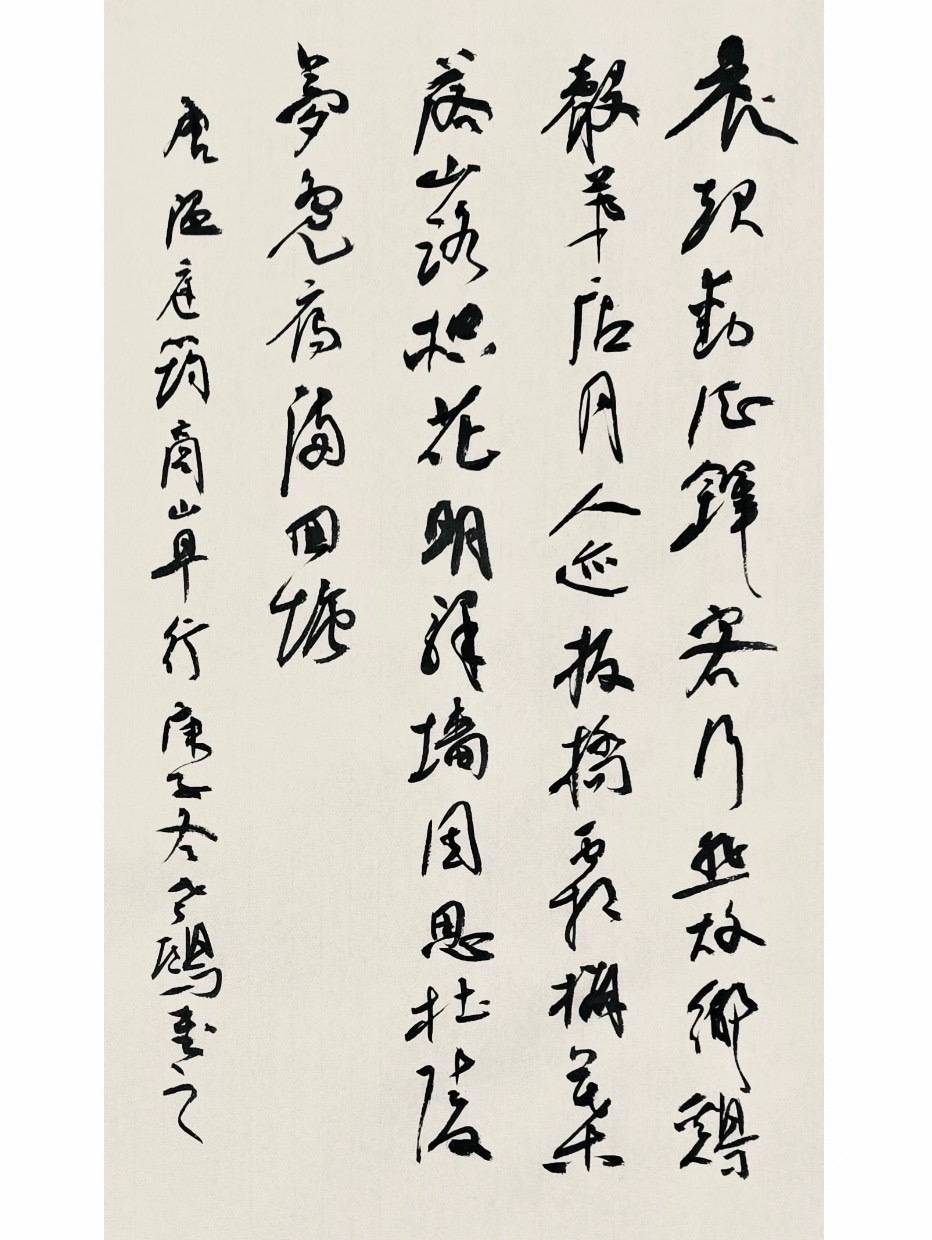 晨起動征鐸客行悲故鄉鷄
聲茅店月人迹板橋霜槲葉
落山路枳花明驛墙因思杜陵
夢鳧鴈滿回塘
唐温庭筠商山早行庚子冬鷗書之